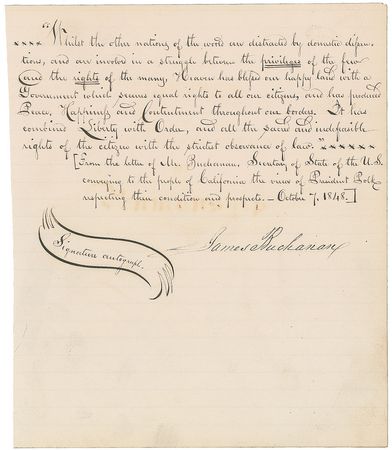 "Whilst the other nations of the world are distracted by domestic dissen-
tions, and are involved in a struggle between the privileges of the few
and the rights of the many, Heaven has blessed our happy land with a
Government which secures equal rights to all our citizens, and has produced
Peace, Happiness and Contentment throughout our borders. It has
combined Liberty with Order, and all the sacred and indefeasible
rights of the citizen with the strictest observance of law."
[From the letter of Mr. Buchanan, Secretary of State of the U.S.
conveying to the people of California the view of President Polk
respecting their condition and prospects. — October 7, 1848.]
Signature autograph.
James Buchanan